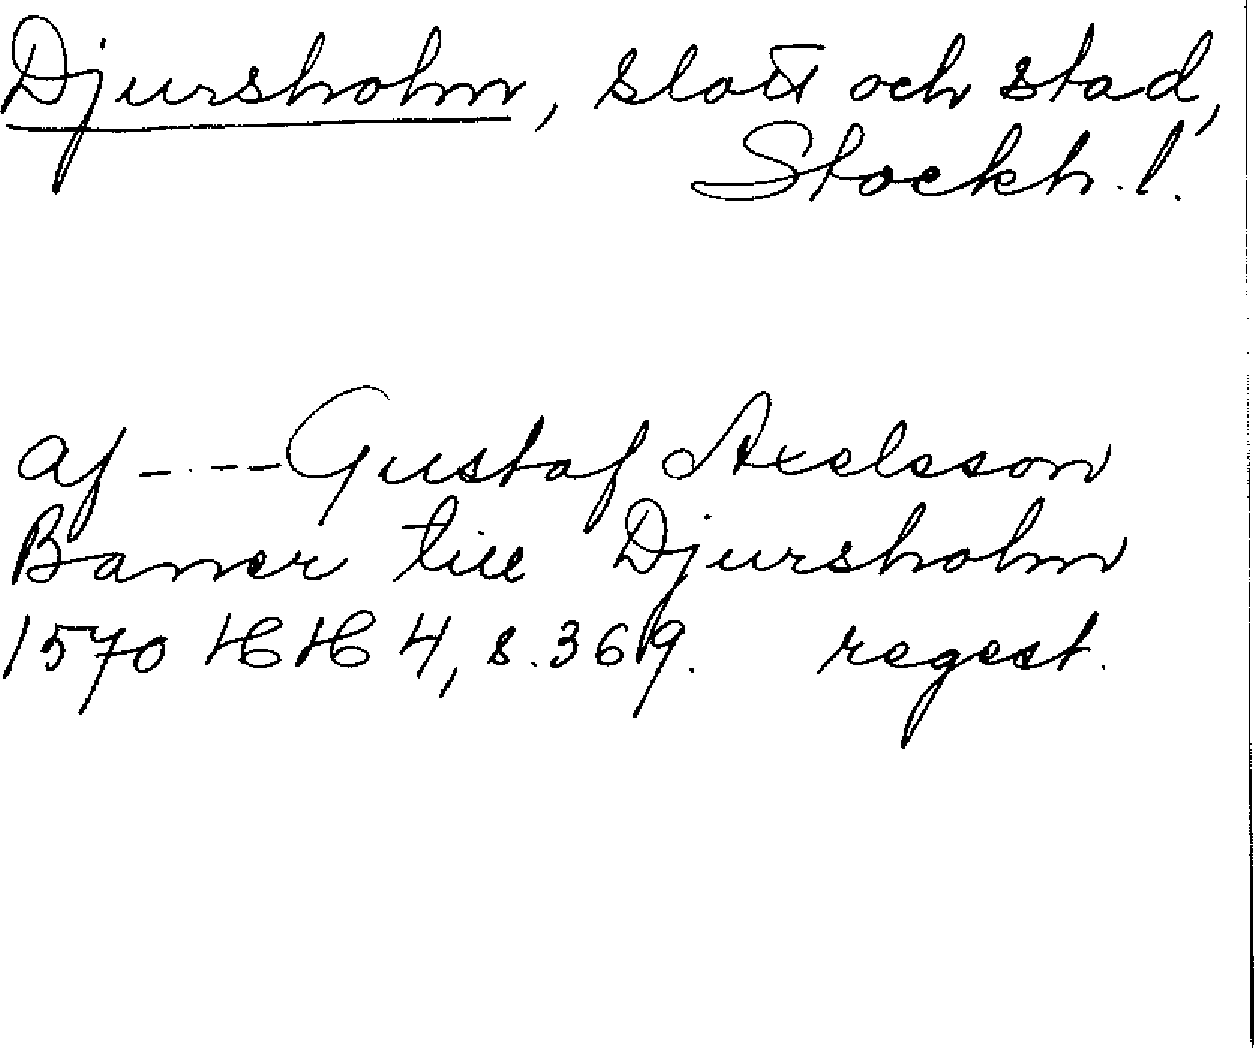 Djursholm, slott och stad,
Stockh. l.
af - - - - Gustaf Axelsson
Baner till Djursholm
1570 HH 4, s. 369. regest.